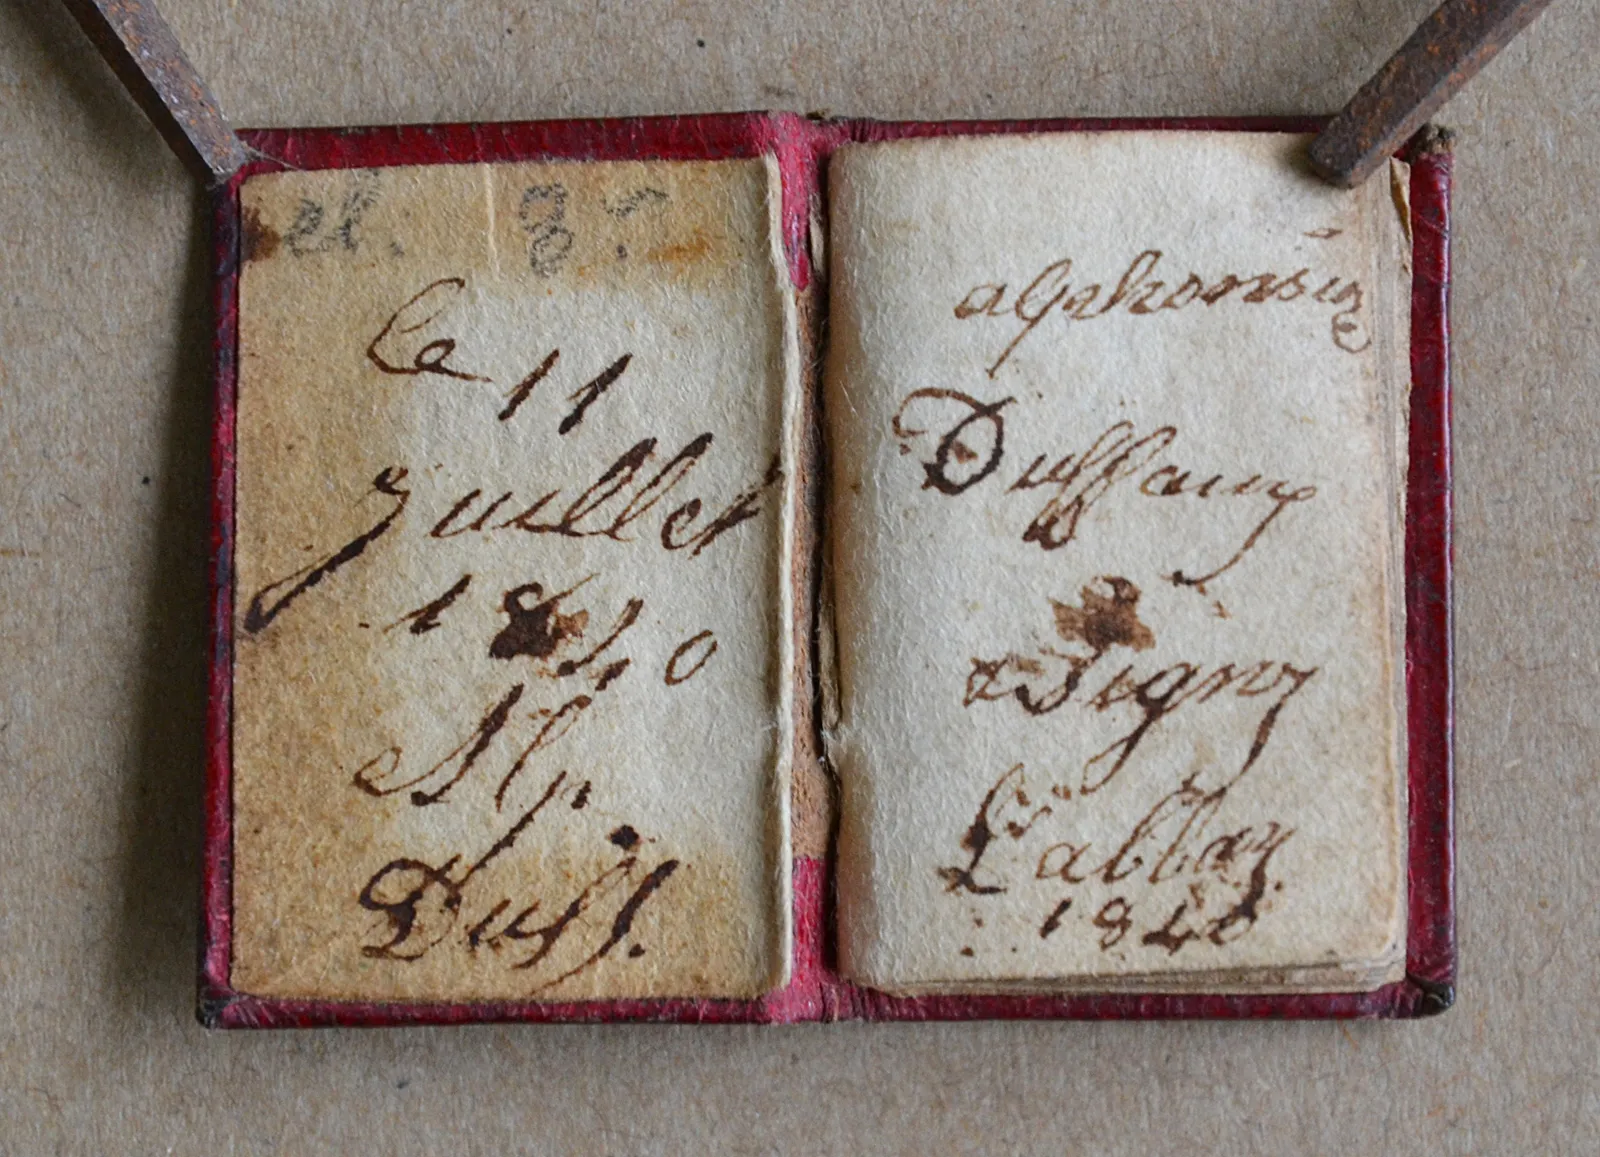 el. 8.
Le 11
Juillet
1840
Alp.
Duff.
alphonsine
Duffauy
à Signy
L'abbay
1840